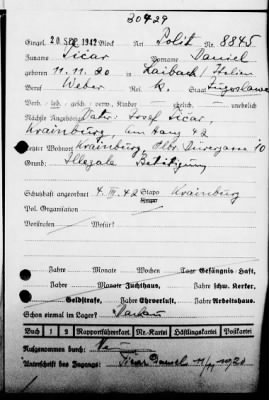 30429
Eingel. 20 SEP. 1942 Block Art Polit Nr. 8845
Zuname Sicar Vorname Daniel
geboren 11.11.20 in Laibach / Italien
Beruf Weber Rel. k. Staat Jugoslawe
Verh. led. gesch. verw. Kinder — ehelich, — unehelich
Nächste Angehörige Vater: Josef Sicar,
Krainburg, Am Hang 42
Letzter Wohnort Krainburg, Albr. Dürergasse 10
Grund: Illegale Betätigung
Schutzhaft angeordnet 4. III. 42 Stapo Krainburg
Pol. Organisation
Vorstrafen Wofür?
Jahre Monate Wochen Tage Gefängnis Haft,
Jahre Monate Zuchthaus, Jahre schw. Kerker,
Geldstrafe, Jahre Ehrverlust, Jahre Arbeitshaus.
Schon einmal im Lager? Dachau
Buch 1 2 Rapportführerkart. Nr.-Kartei Häftlingskartei Postkartei
Aufgenommen durch:
Unterschrift des Zugangs: Sicar Daniel 11/11 1920